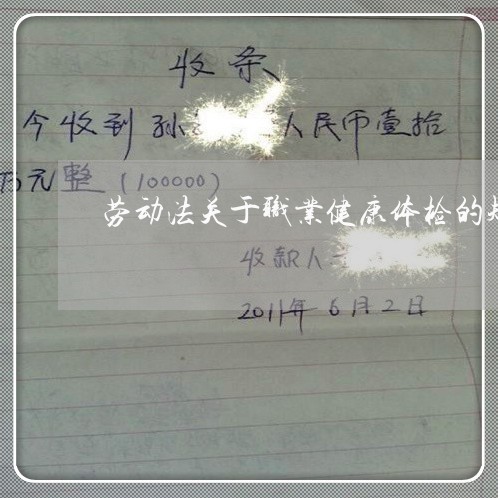 收条
今收到孙 人民币壹拾
万元整（100000）
劳动法关于職業健康体检的
收款人
2011年6月2日